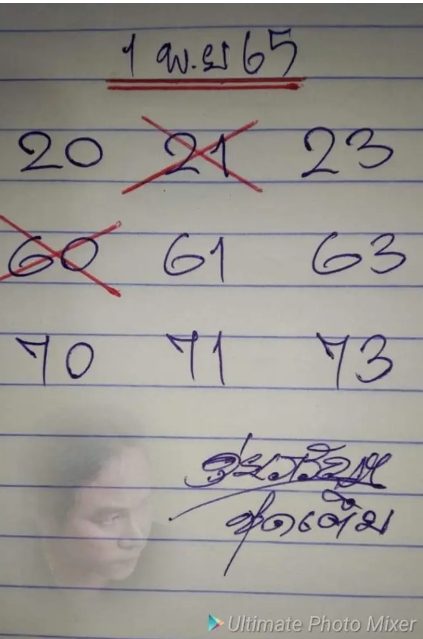 1 พ.ย 65
20 21 23
60 61 63
70 71 73
Ultimate Photo Mixer